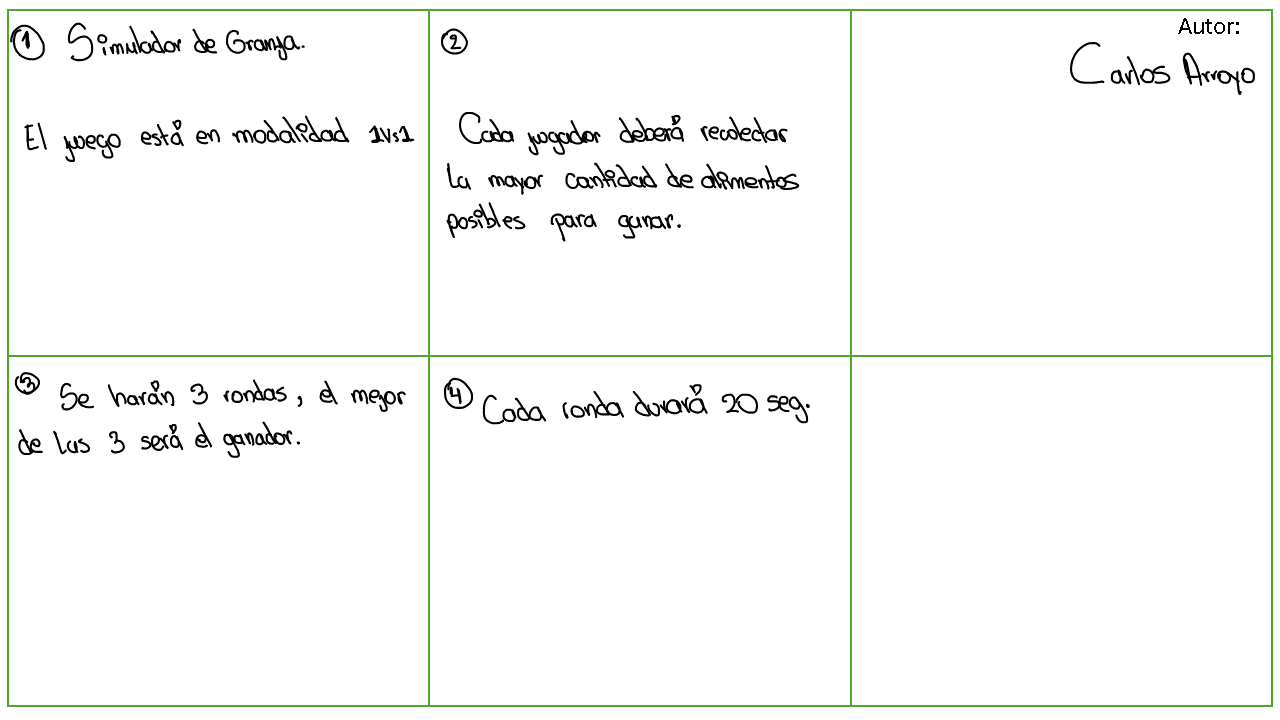 ① Simulador de Granja.
El juego está en modalidad 1vs1
②
Cada jugador deberá recolectar
la mayor cantidad de alimentos
posibles para ganar.
Autor:
Carlos Arroyo
③ Se harán 3 rondas, el mejor
de las 3 será el ganador.
④ Cada ronda durará 20 seg.